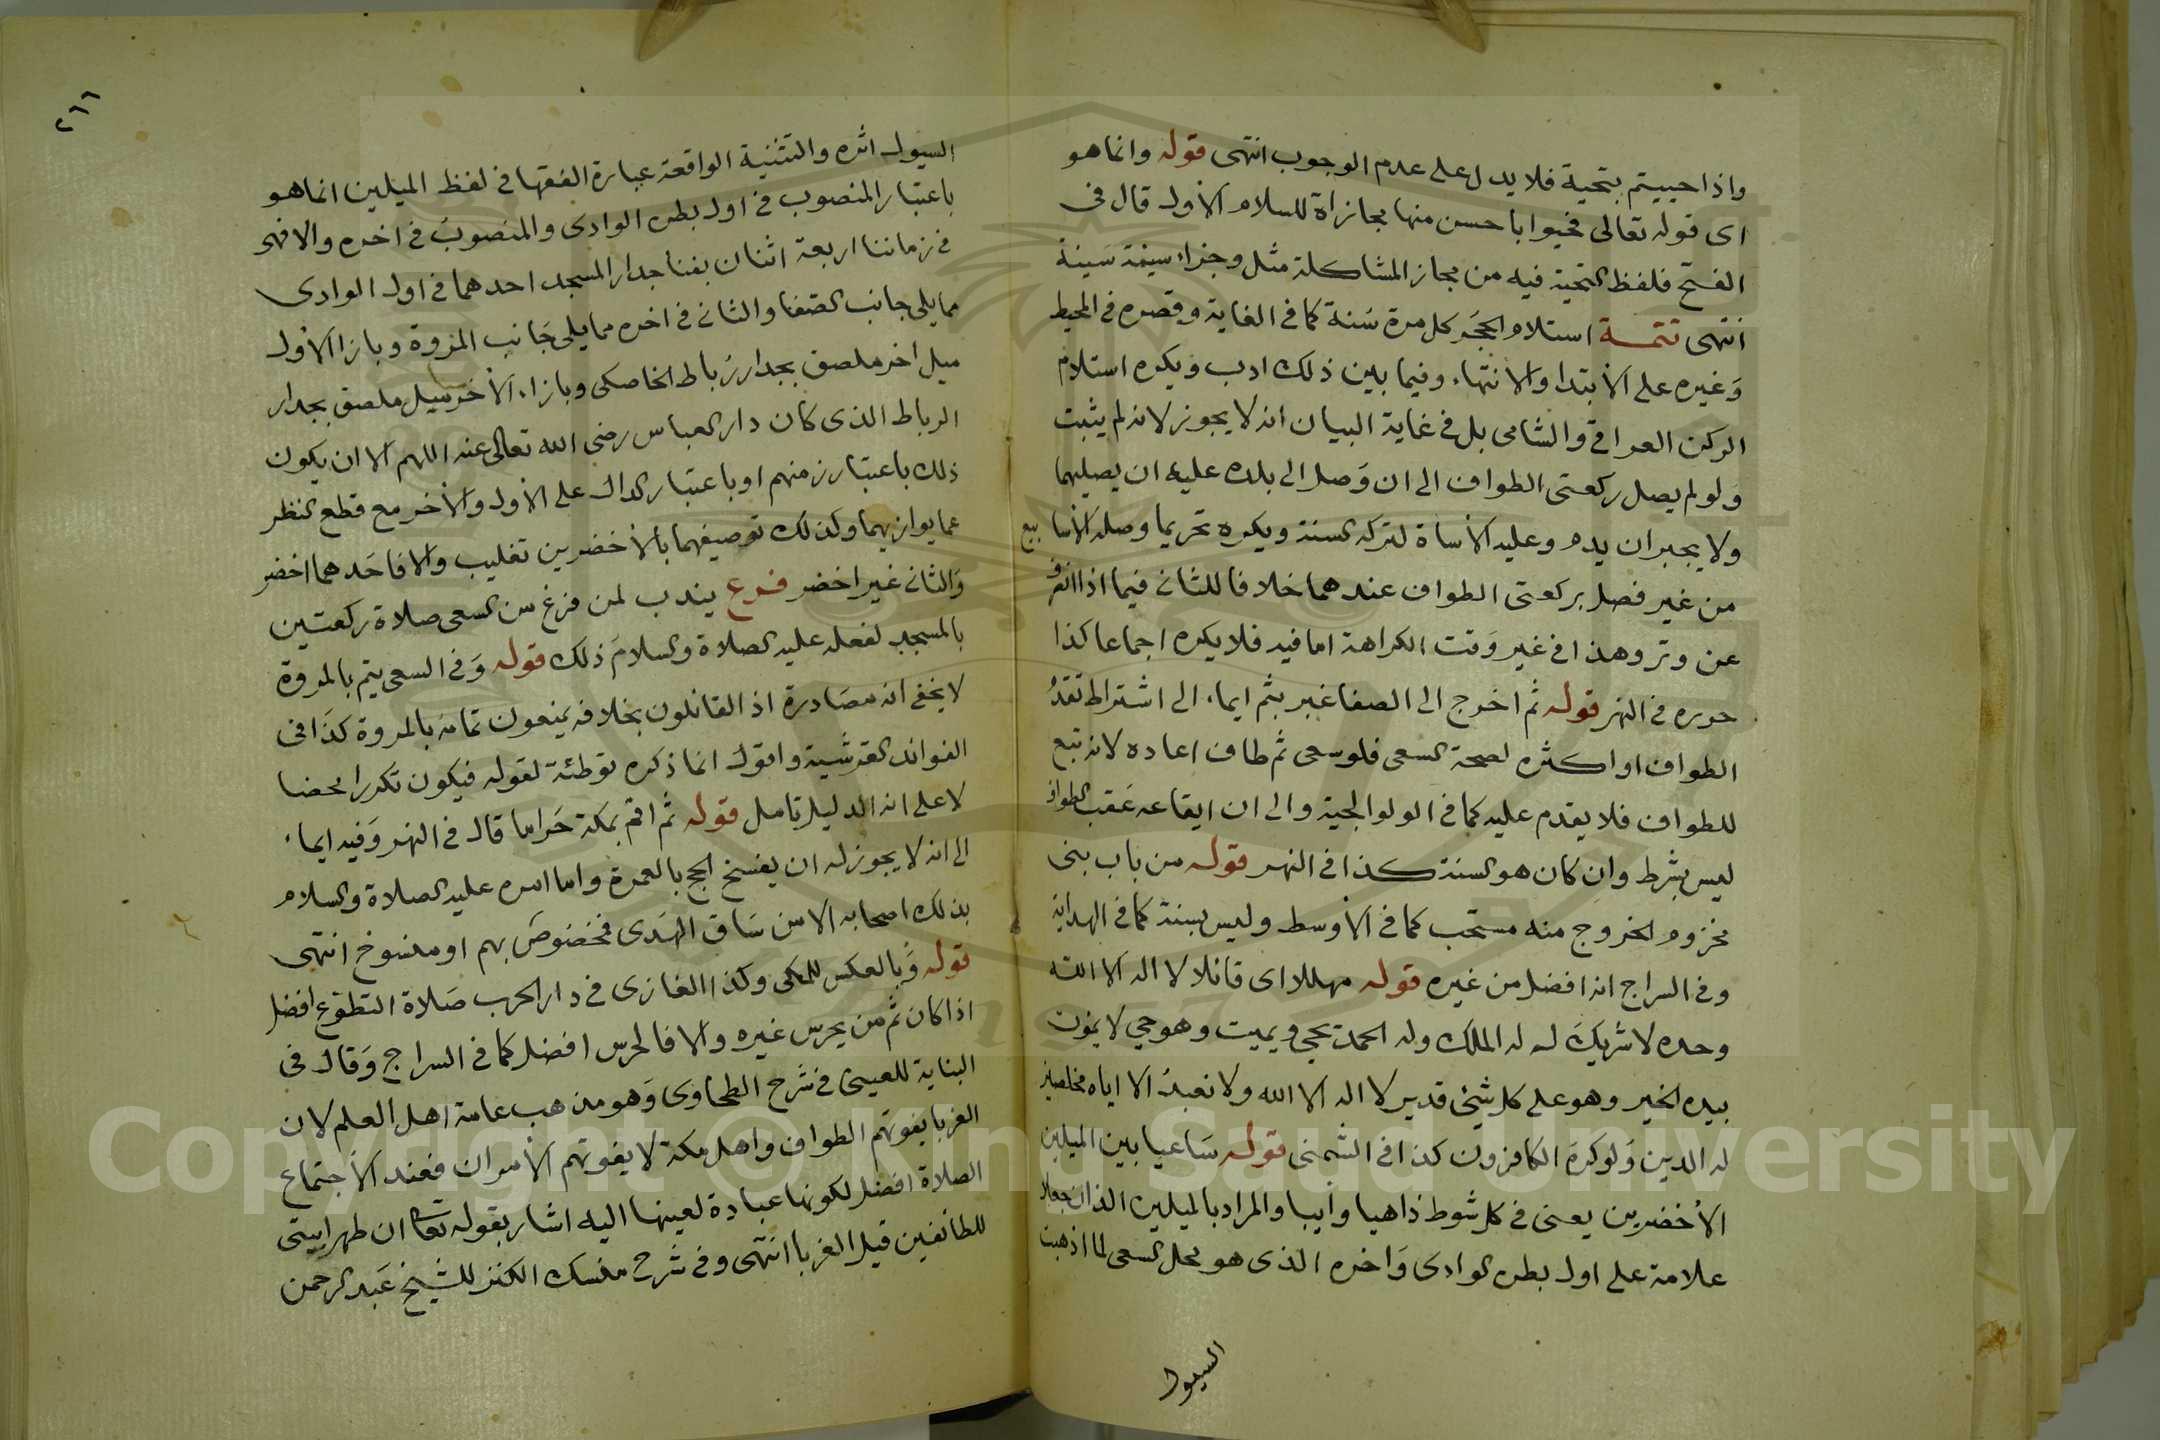 واذا حييتم بتحية فلا يدل على عدم الوجوب انتهى قوله وانما هو
اى قوله تعالى فحيوا باحسن منها مجازاة للسلام الاول قال فى
الفتح فلفظ التحية فيه من مجاز المشاكلة مثل وجزاء سيئة سيئة
انتهى تتمة استلام الحجر كل مرة سنة كما فى الغاية وقصره فى المحيط
وغيره على الابتدا والانتهاء وفيما بين ذلك ادب ويكره استلام
الركن العراقى والشامى بل فى غاية البيان انه لا يجوز لانه لم يثبت
ولو لم يصل ركعتى الطواف الى ان وصل الى بلده عليه ان يصليهما
ولا يجبران بدم وعليه الاساة لتركه السنة ويكره تحريما وصله الاسابيع
من غير فصل بركعتى الطواف عندهما خلافا للثانى فيما اذا انصرف
عن وتر وهذا فى غير وقت الكراهة اما فيه فلا يكره اجماعا كذا
حرره فى النهر قوله ثم اخرج الى الصفا عبر بثم ايماء الى اشتراط تقدم
الطواف او اكثره لصحة السعى فلو سعى ثم طاف اعاده لانه تبع
للطواف فلا يقدم عليه كما فى الولوالجية والى ان ايقاعه عقب الطواف
ليس بشرط وان كان هو السنة كذا فى النهر قوله من باب بنى
مخزوم الخروج منه مستحب كما فى الاوسط وليس بسنة كما فى الهداية
وفى السراج انه افضل من غيره قوله مهللا اى قائلا لا اله الا الله
وحده لا شريك له له الملك وله الحمد يحيى ويميت وهو حي لا يموت
بيده الخير وهو على كل شيئ قدير لا اله الا الله ولا نعبد الا اياه مخلصين
له الدين ولو كره الكافرون كذا فى الشمنى قوله ساعيا بين الميلين
الاخضرين يعنى فى كل شوط ذاهبا وآيبا والمراد بالميلين اللذان جعلا
علامة على اول بطن الوادى واخره الذى هو محل السعى لما اذهبت
السيول
٢٦٦
السيول اثره والتثنية الواقعة عبارة الفقها فى لفظ الميلين انما هو
باعتبار المنصوب فى اول بطن الوادى والمنصوب فى اخره والا فهى
فى زماننا اربعة اثنان بفنا جدار المسجد احدهما فى اول الوادى
مما يلى جانب الصفا والثانى فى اخره مما يلى جانب المروة وبازا الاول
ميل اخر ملصق بجدار رباط الخاصكى وبازاء الاخر ميل ملصق بجدار
الرباط الذى كان دار العباس رضى الله تعالى عنه اللهم الا ان يكون
ذلك باعتبار زمنهم او باعتبار الدال على الاول والاخر مع قطع النظر
عما يوازيهما وكذلك توصيفهما بالاخضرين تغليب والا فاحدهما اخضر
والثانى غير اخضر فرع يندب لمن فرغ من السعى صلاة ركعتين
بالمسجد لفعله عليه الصلاة والسلام ذلك قوله وفى السعى يتم بالمروة
لا يخفى انه مصادرة اذ القائلون بخلافه يمنعون تمامه بالمروة كذا فى
الفوائد القرشية واقول انما ذكره توطئة لقوله فيكون تكررا محضا
لا على انه الدليل تامل قوله ثم اقم بمكة حراما قال فى النهر وفيه ايماء
الى انه لا يجوز له ان يفسخ الحج بالعمرة واما امره عليه الصلاة والسلام
بذلك اصحابه الا من ساق الهدى فمخصوص بهم او منسوخ انتهى
قوله وبالعكس للمكى وكذا الغازى فى دار الحرب صلاة التطوع افضل
اذا كان ثم من يحرس غيره والا فالحرس افضل كما فى السراج وقال فى
البناية للعينى فى شرح الطحاوى وهو مذهب عامة اهل العلم لان
الغربا يفوتهم الطواف واهل مكة لا يفوتهم الامران فعند الاجتماع
الصلاة افضل لكونها عبادة لعينها اليه اشار بقوله تعالى ان طهرا بيتى
للطائفين قيل الغربا انتهى وفى شرح منسك الكنز للشيخ عبد الرحمن
Copyright © King Saud University